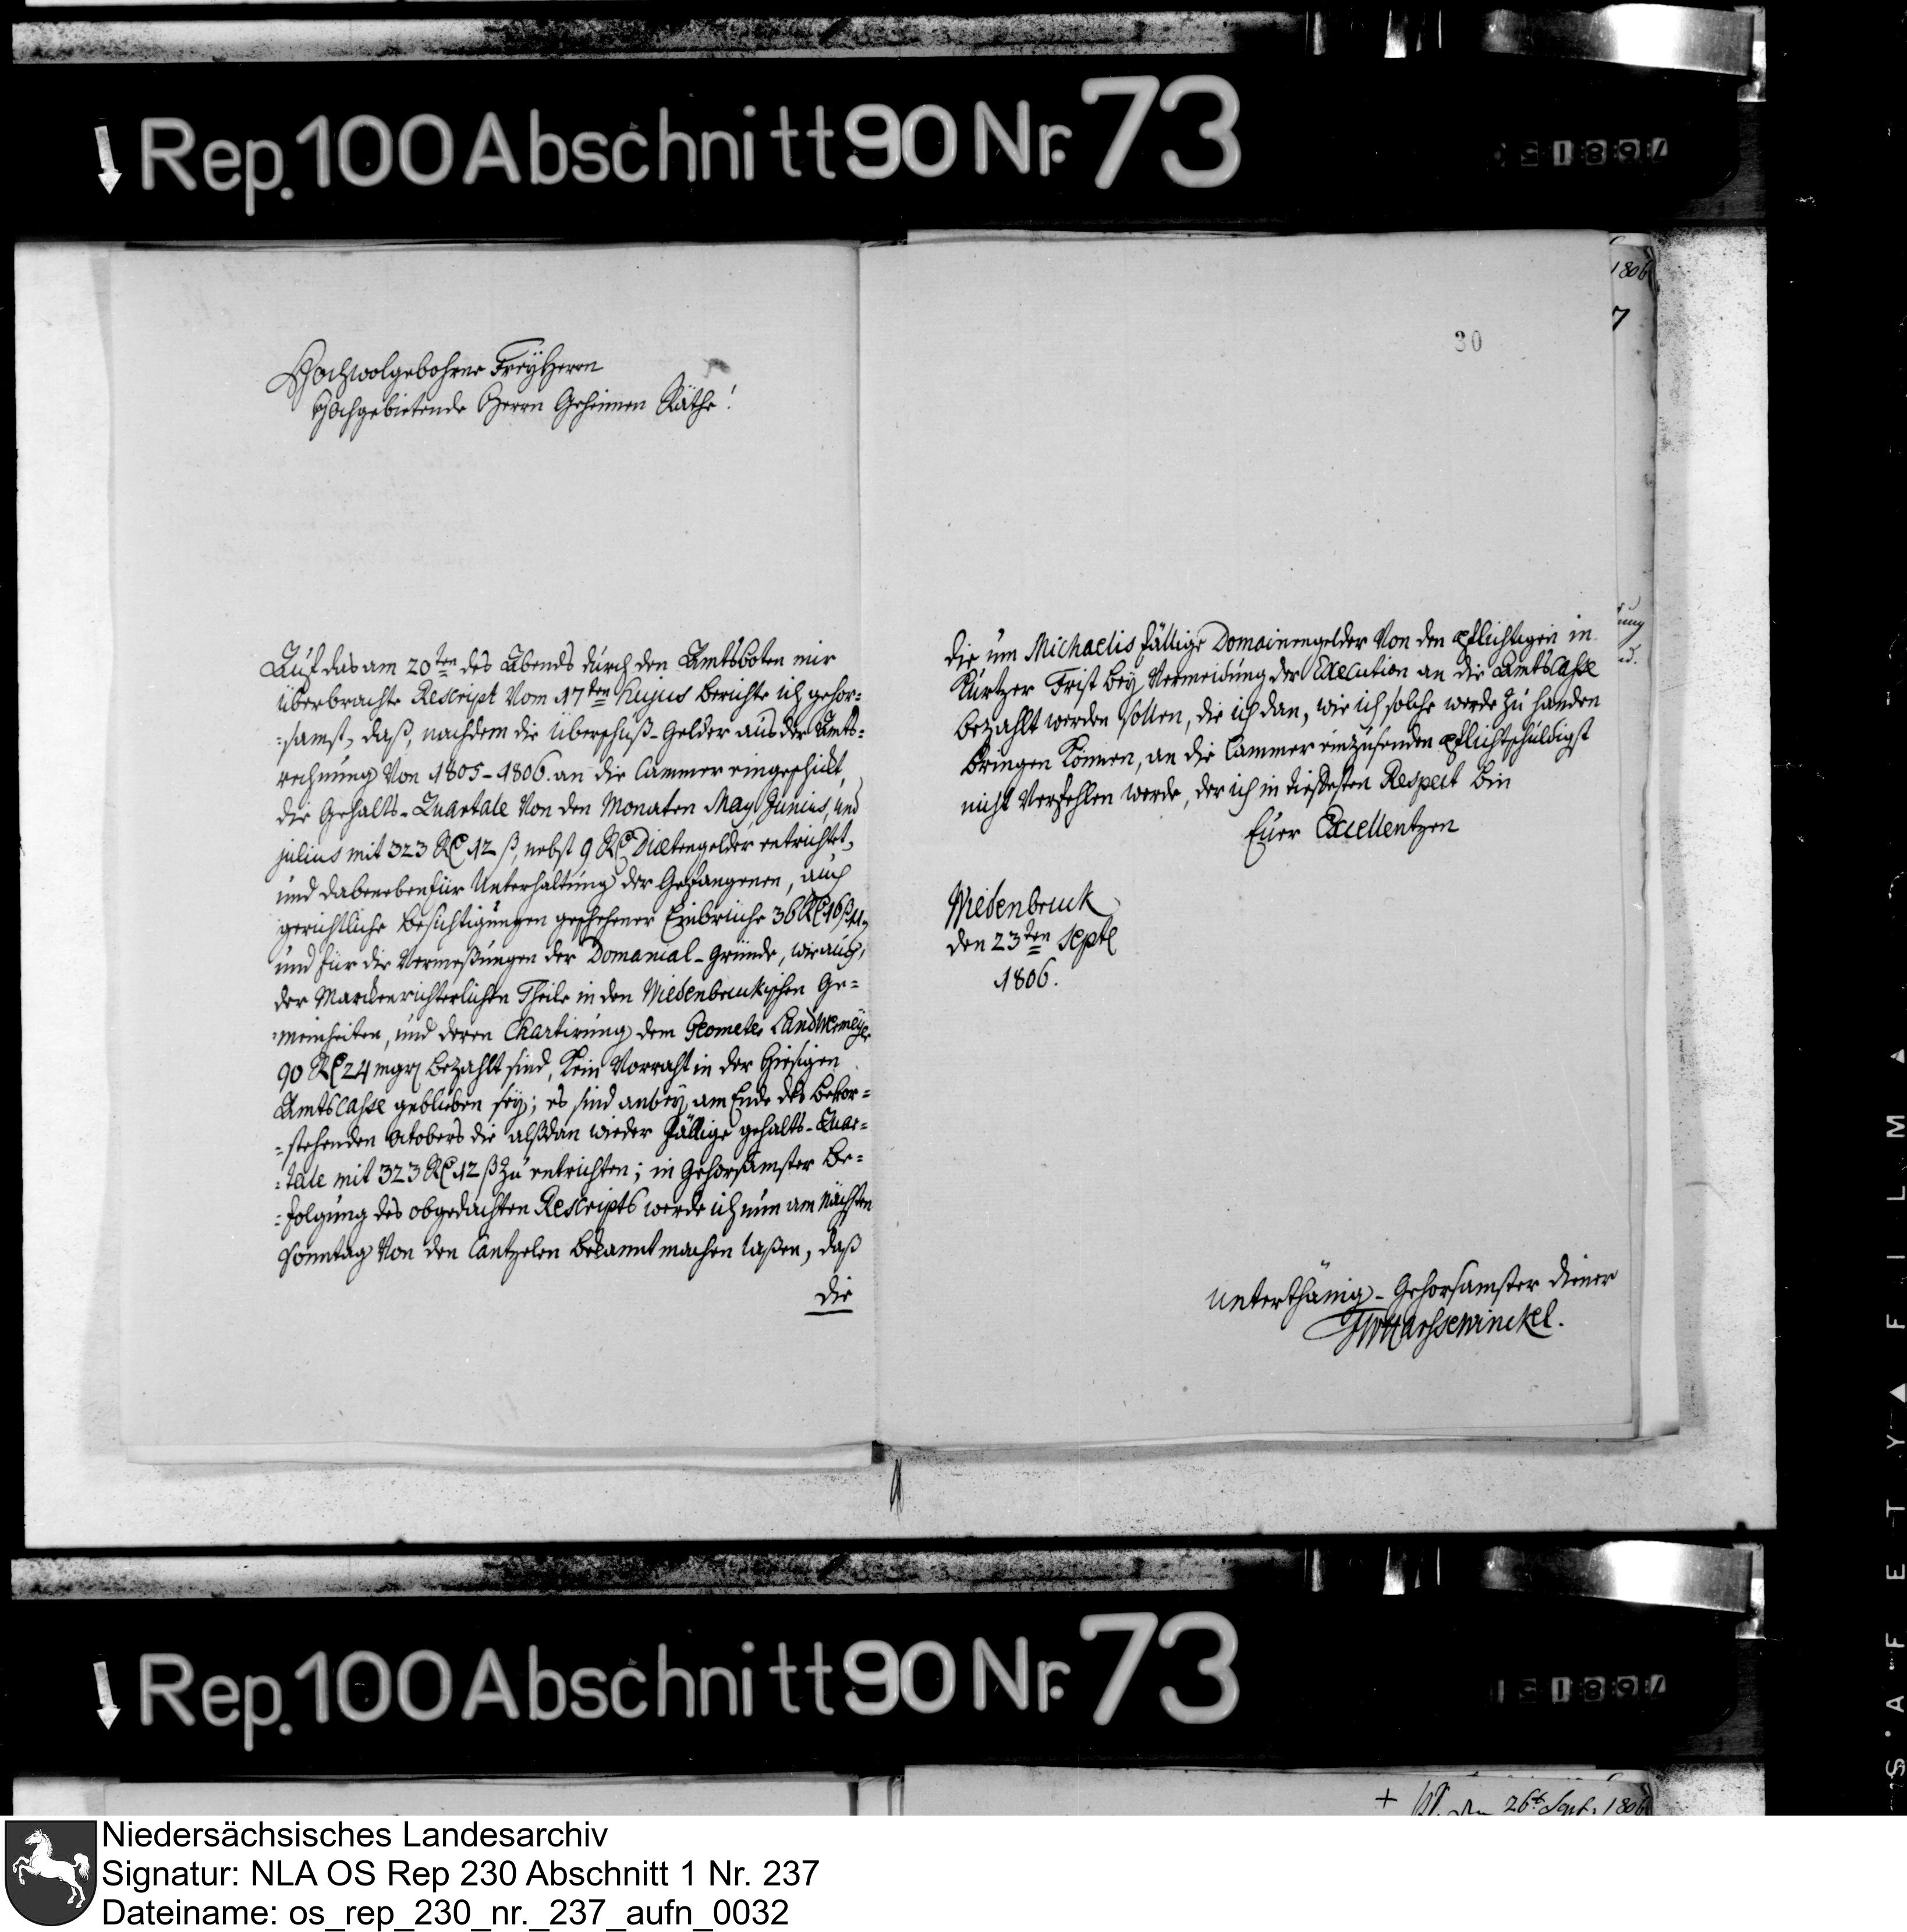 Rep. 100 Abschnitt 90 Nr. 73
Hochwolgebohrne FreyHerrn
Hochgebietende Herrn Geheimen Räthe!
Auf das am 20ten des Abends durch den Amtsboten mir
überbrachte Rescript vom 17ten hujus berichte ich gehor=
=samst, daß, nachdem die überschuß-Gelder aus der Amts=
rechnung von 1805-1806. an die Cammer eingeschickt,
die Gehalts-Quartale von den Monaten May, Junius, und
julius mit 323 R 12 ß, nebst 9 R Diætengelder entrichtet,
und daneben für Unterhaltung der Gefangenen, auch
gerichtliche besichtigungen geschehener Einbrüche 36 R 16 ß
und für die Vermeßungen der Domanial-gründe, wie auch,
der Marckenrichterlichen Theile in den Wiedenbruckischen Ge=
=meinheiten, und deren Chartirung dem Geometer Landwermeyer
90 R 24 mgr bezahlt sind, kein Vorraht in der hiesigen
AmtsCasse geblieben sey; es sind anbey am Ende des bevor=
=stehenden octobers die alßdan wieder fällige gehalts-Quar=
=tale mit 323 R 12 ß zu entrichten; in gehorsamster Be=
=folgung des obgedachten Rescripts werde ich nun am nächsten
Sonntag von den Cantzelen bekannt machen laßen, daß
die
30
die um Michaelis fällige Domainengelder von den pflichtigen in
kurtzer Frist bey Vermeidung der Execution an die AmtsCasse
bezahlt werden sollen, die ich dan, wie ich solche werde zu handen
bringen können, an die Cammer einzusenden pflichtschuldigst
nicht verfehlen werde, der ich in tiefesten Respect bin
Euer Excellentzen
Wiedenbruck
den 23ten Septe
1806.
unterthänig-Gehorsamster diener
Harssewinckel.
1806
7
Rep. 100 Abschnitt 90 Nr. 73
+ den 26t Sept. 1806
SAFETY FILM
Niedersächsisches Landesarchiv
Signatur: NLA OS Rep 230 Abschnitt 1 Nr. 237
Dateiname: os_rep_230_nr._237_aufn_0032